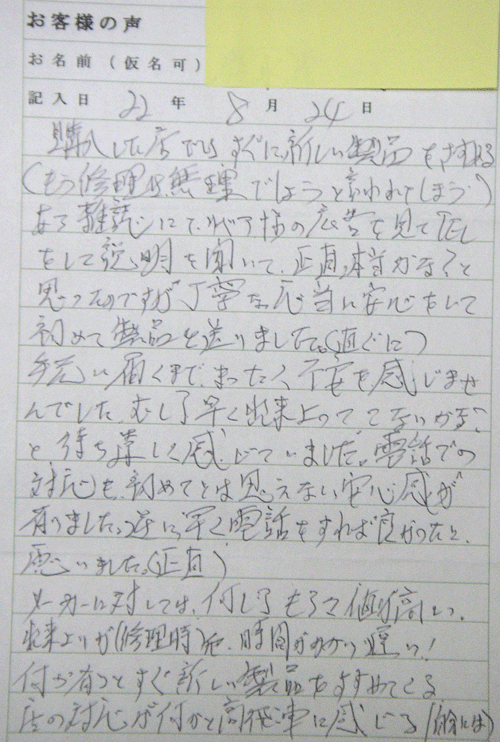 お客様の声
お名前（仮名可）
記入日 22年 8月 24日
購入した店でもすぐに新しい製品をすすめる
（もう修理は無理でしょうと言われてしまう）
ある雑誌にて、 の広告を見てTEL
をして説明を聞いて、正直、本当かな？と
思ったのですが丁寧な応対に安心をして
初めて製品を送りました。（直ぐに）
手元に届くまで、まったく不安を感じませ
んでした。むしろ早く出来上ってこないかな？
と待ち遠しく感じていました。電話での
対応も、初めてとは思えない安心感が
有りました。逆に、早く電話をすれば良かったと、
思いました。（正直）
メーカーに対しては、何しろ 値が高い。
出来上りが（修理時） 、時間がかかり遅い！
何か有るとすぐ新しい製品をすすめてくる
店の対応が何かと高飛車に感じる